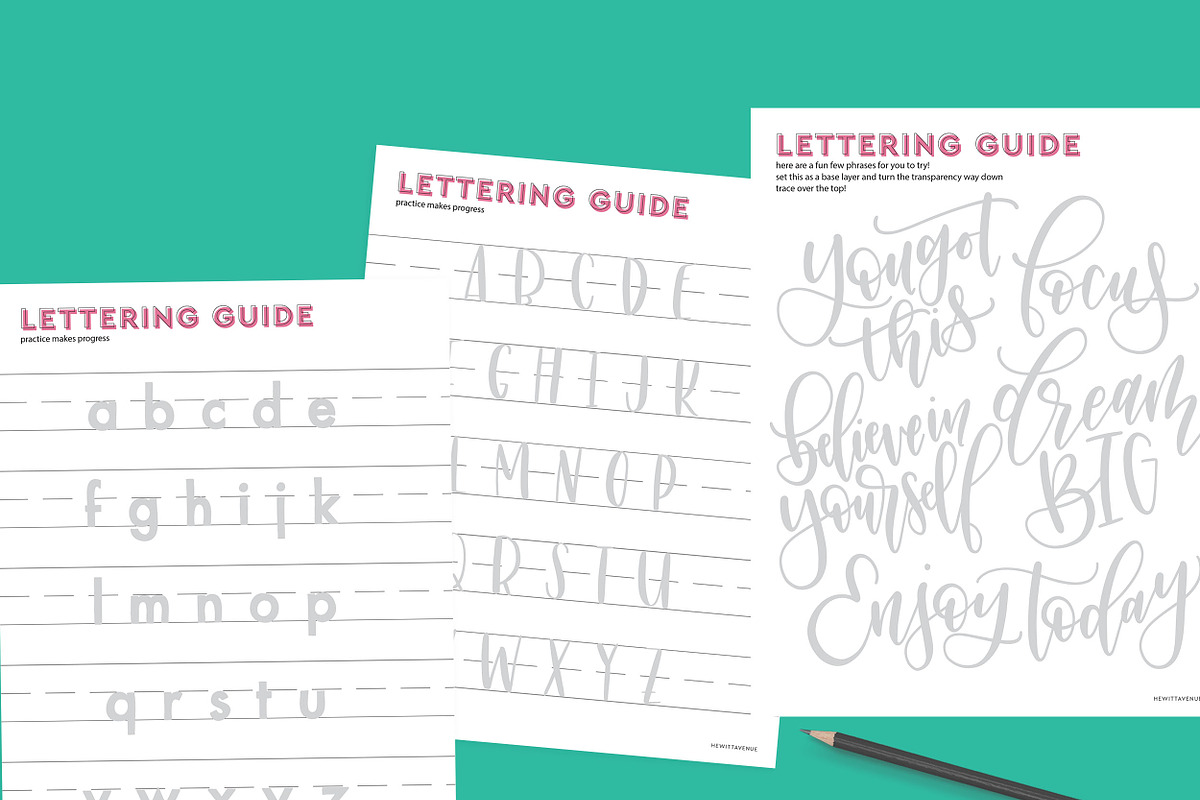 LETTERING GUIDE
practice makes progress
a b c d e
f g h i j k
l m n o p
q r s t u
v w x y z
LETTERING GUIDE
practice makes progress
A B C D E
G H I J K
L M N O P
Q R S T U
W X Y Z
HEWITTAVENUE
LETTERING GUIDE
here are a fun few phrases for you to try!
set this as a base layer and turn the transparency way down
trace over the top!
you got
this
focus
believe in
yourself
dream
BIG
Enjoy today
HEWITTAVENUE